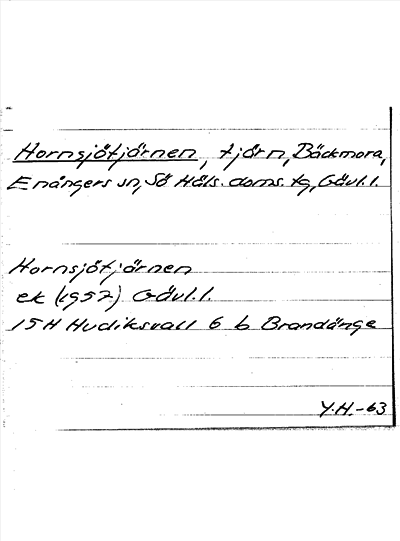 Hornsjötjärnen, tjärn, Bäckmora,
Enångers sn, Sö Häls. doms. tg, Gävl.l.
Hornsjötjärnen
ek (1957) Gävl.l.
15H Hudiksvall 6 b Brandänge
Y.H.-63